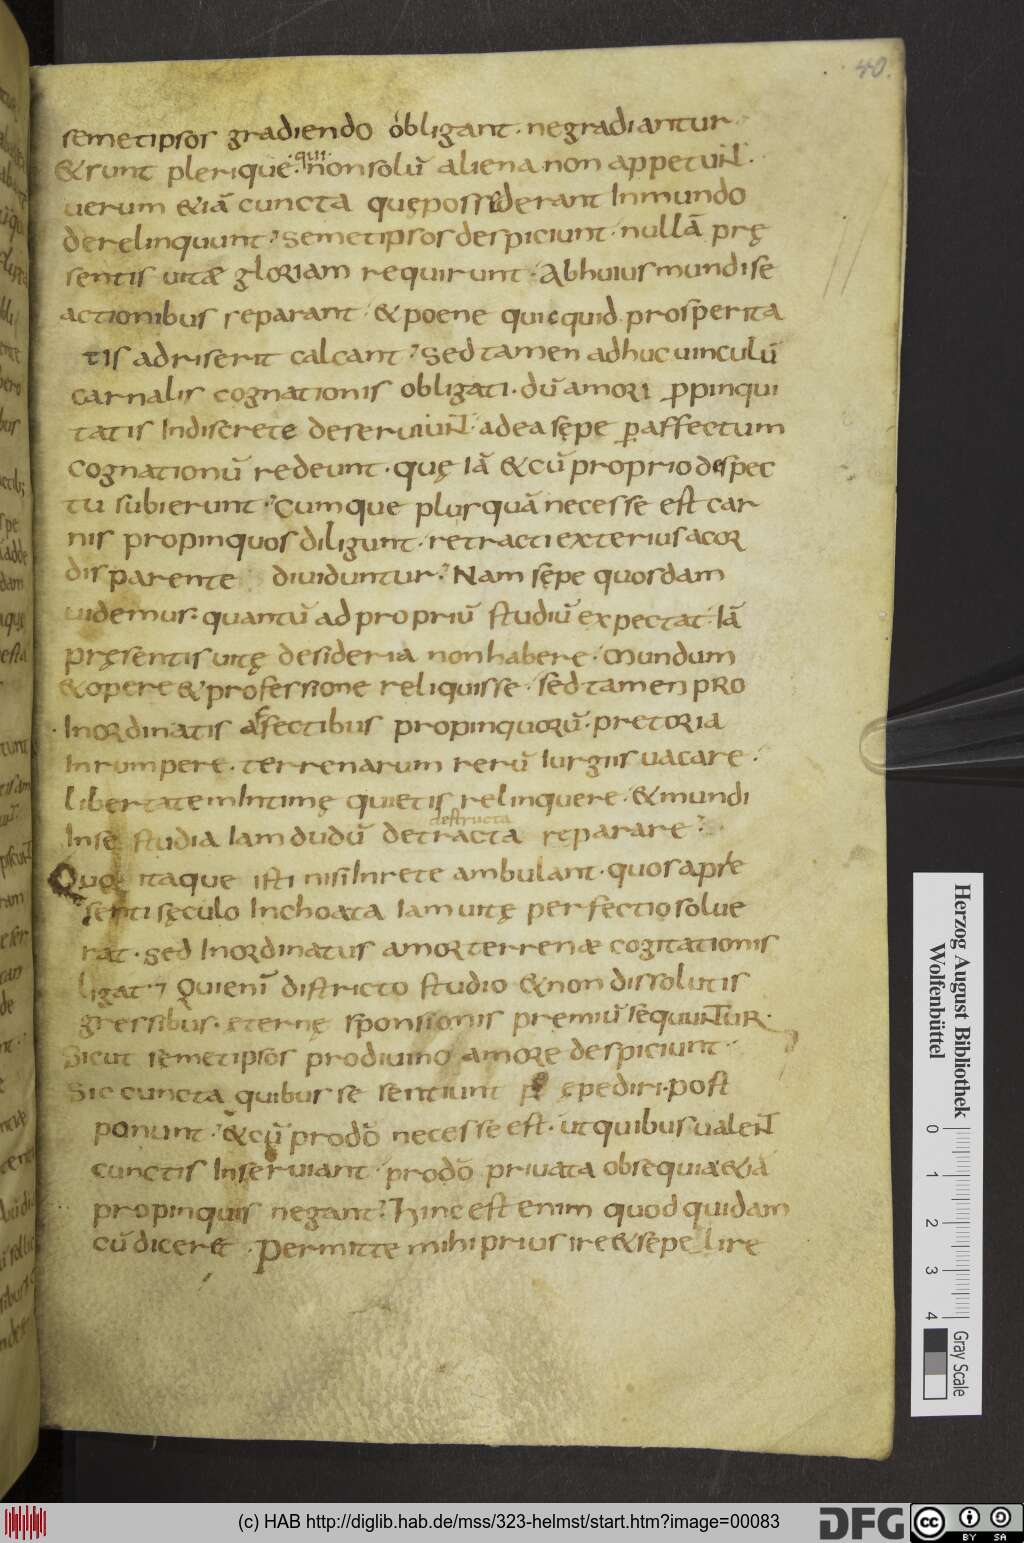 40.
semetipsos gradiendo obligant · negradiantur
&sunt plerique · qui · nonsolū aliena non appetunt ·
uerum &iā cuncta quępossiderant Inmundo
derelinquunt · semetipsos despiciunt · nullā prę
sentis uitæ gloriam requirunt · Abhuius mundi se
actionibus reparant · &poene quicquid prosperita
tis adriserit calcant · Sed tamen adhuc uinculū
carnalis cognationis obligati · dū amori ꝓpinqui
tatis Indiscrete deseruiunt · adea sępe ꝑaffectum
cognationū redeunt · quę Iā &cū proprio despec
tu subierunt · Cumque plusquā necesse est car
nis propinquos diligunt · retracti exterius acor
dis parente diuiduntur · Nam sępe quosdam
uidemus · quantū ad propriū studiū expectat · Iā
pręsentis uitę desideria non habere · Mundum
&opere &professione reliquisse · sed tamen pro
Inordinatis affectibus propinquorū · pretoria
Inrumpere · terrenarum rerū Iurgiis uacare ·
libertatem Intimę quietis relinquere · &mundi
destructa
Inse studia Iam dudū detracta reparare ·
Quo itaque isti nisi Inrete ambulant · quos aprę
senti sęculo Inchoata Iam uitę perfectio solue
rat · sed Inordinatus amor terrenæ cogitationis
ligat · Qui enī districto studio &non dissolutis
gressibus · eternę sponsionis premiū sequuntur ·
Sicut semetipsos prodiuino amore despiciunt ·
Sic cuncta quibus se sentiunt ępediri · post
ponunt · &cū prodō necesse est · ut quibus ualent
cunctis Inseruiant · prodō priuata obsequia &iā
propinquis negant · Hinc est enim quod quidam
cū diceret · Permitte mihi prius ire &sepelire
Herzog August Bibliothek
Wolfenbüttel
0 1 2 3 4
Gray Scale
(c) HAB http://diglib.hab.de/mss/323-helmst/start.htm?image=00083
DFG
cc BY SA